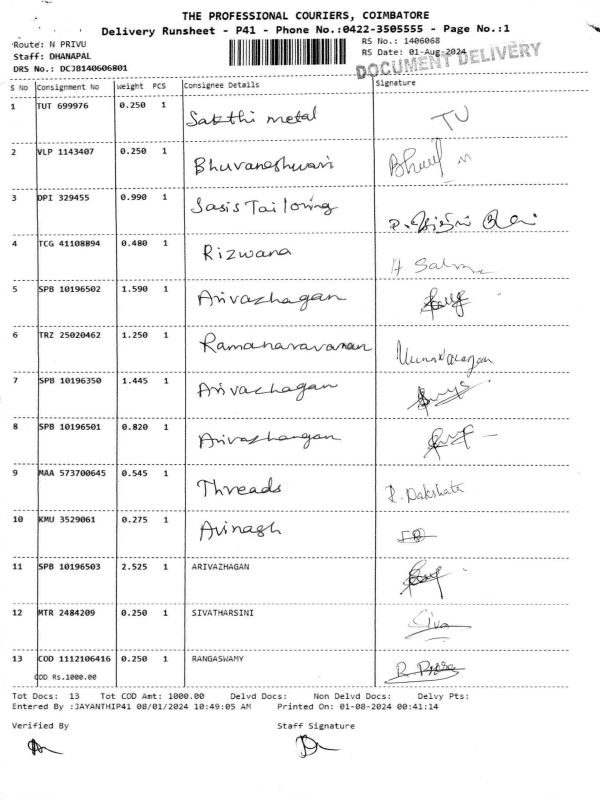 THE PROFESSIONAL COURIERS, COIMBATORE
Delivery Runsheet - P41 - Phone No.:0422-3505555 - Page No.:1
Route: N PRIVU RS No.: 1406068
Staff: DHANAPAL RS Date: 01-Aug-2024
DRS No.: DCJB140606801 DOCUMENT DELIVERY
S No Consignment No Weight PCS Consignee Details Signature
1 TUT 699976 0.250 1 Sakthi metal TU
2 VLP 1143407 0.250 1 Bhuvaneshwari
3 DPI 329455 0.990 1 Sasis Tailoring
4 TCG 41108894 0.480 1 Rizwana
5 SPB 10196502 1.590 1 Arivazhagan
6 TRZ 25020462 1.250 1 Ramanaravanan
7 SPB 10196350 1.445 1 Arivazhagan
8 SPB 10196501 0.820 1 Arivazhangan
9 MAA 573700645 0.545 1 Threads R. Dakshata
10 KMU 3529061 0.275 1 Avinash
11 SPB 10196503 2.525 1 ARIVAZHAGAN
12 MTR 2484209 0.250 1 SIVATHARSINI Siva
13 COD 1112106416 0.250 1 RANGASWAMY
COD Rs.1000.00
Tot Docs: 13 Tot COD Amt: 1000.00 Delvd Docs: Non Delvd Docs: Delvy Pts:
Entered By :JAYANTHIP41 08/01/2024 10:49:05 AM Printed On: 01-08-2024 00:41:14
Verified By Staff Signature